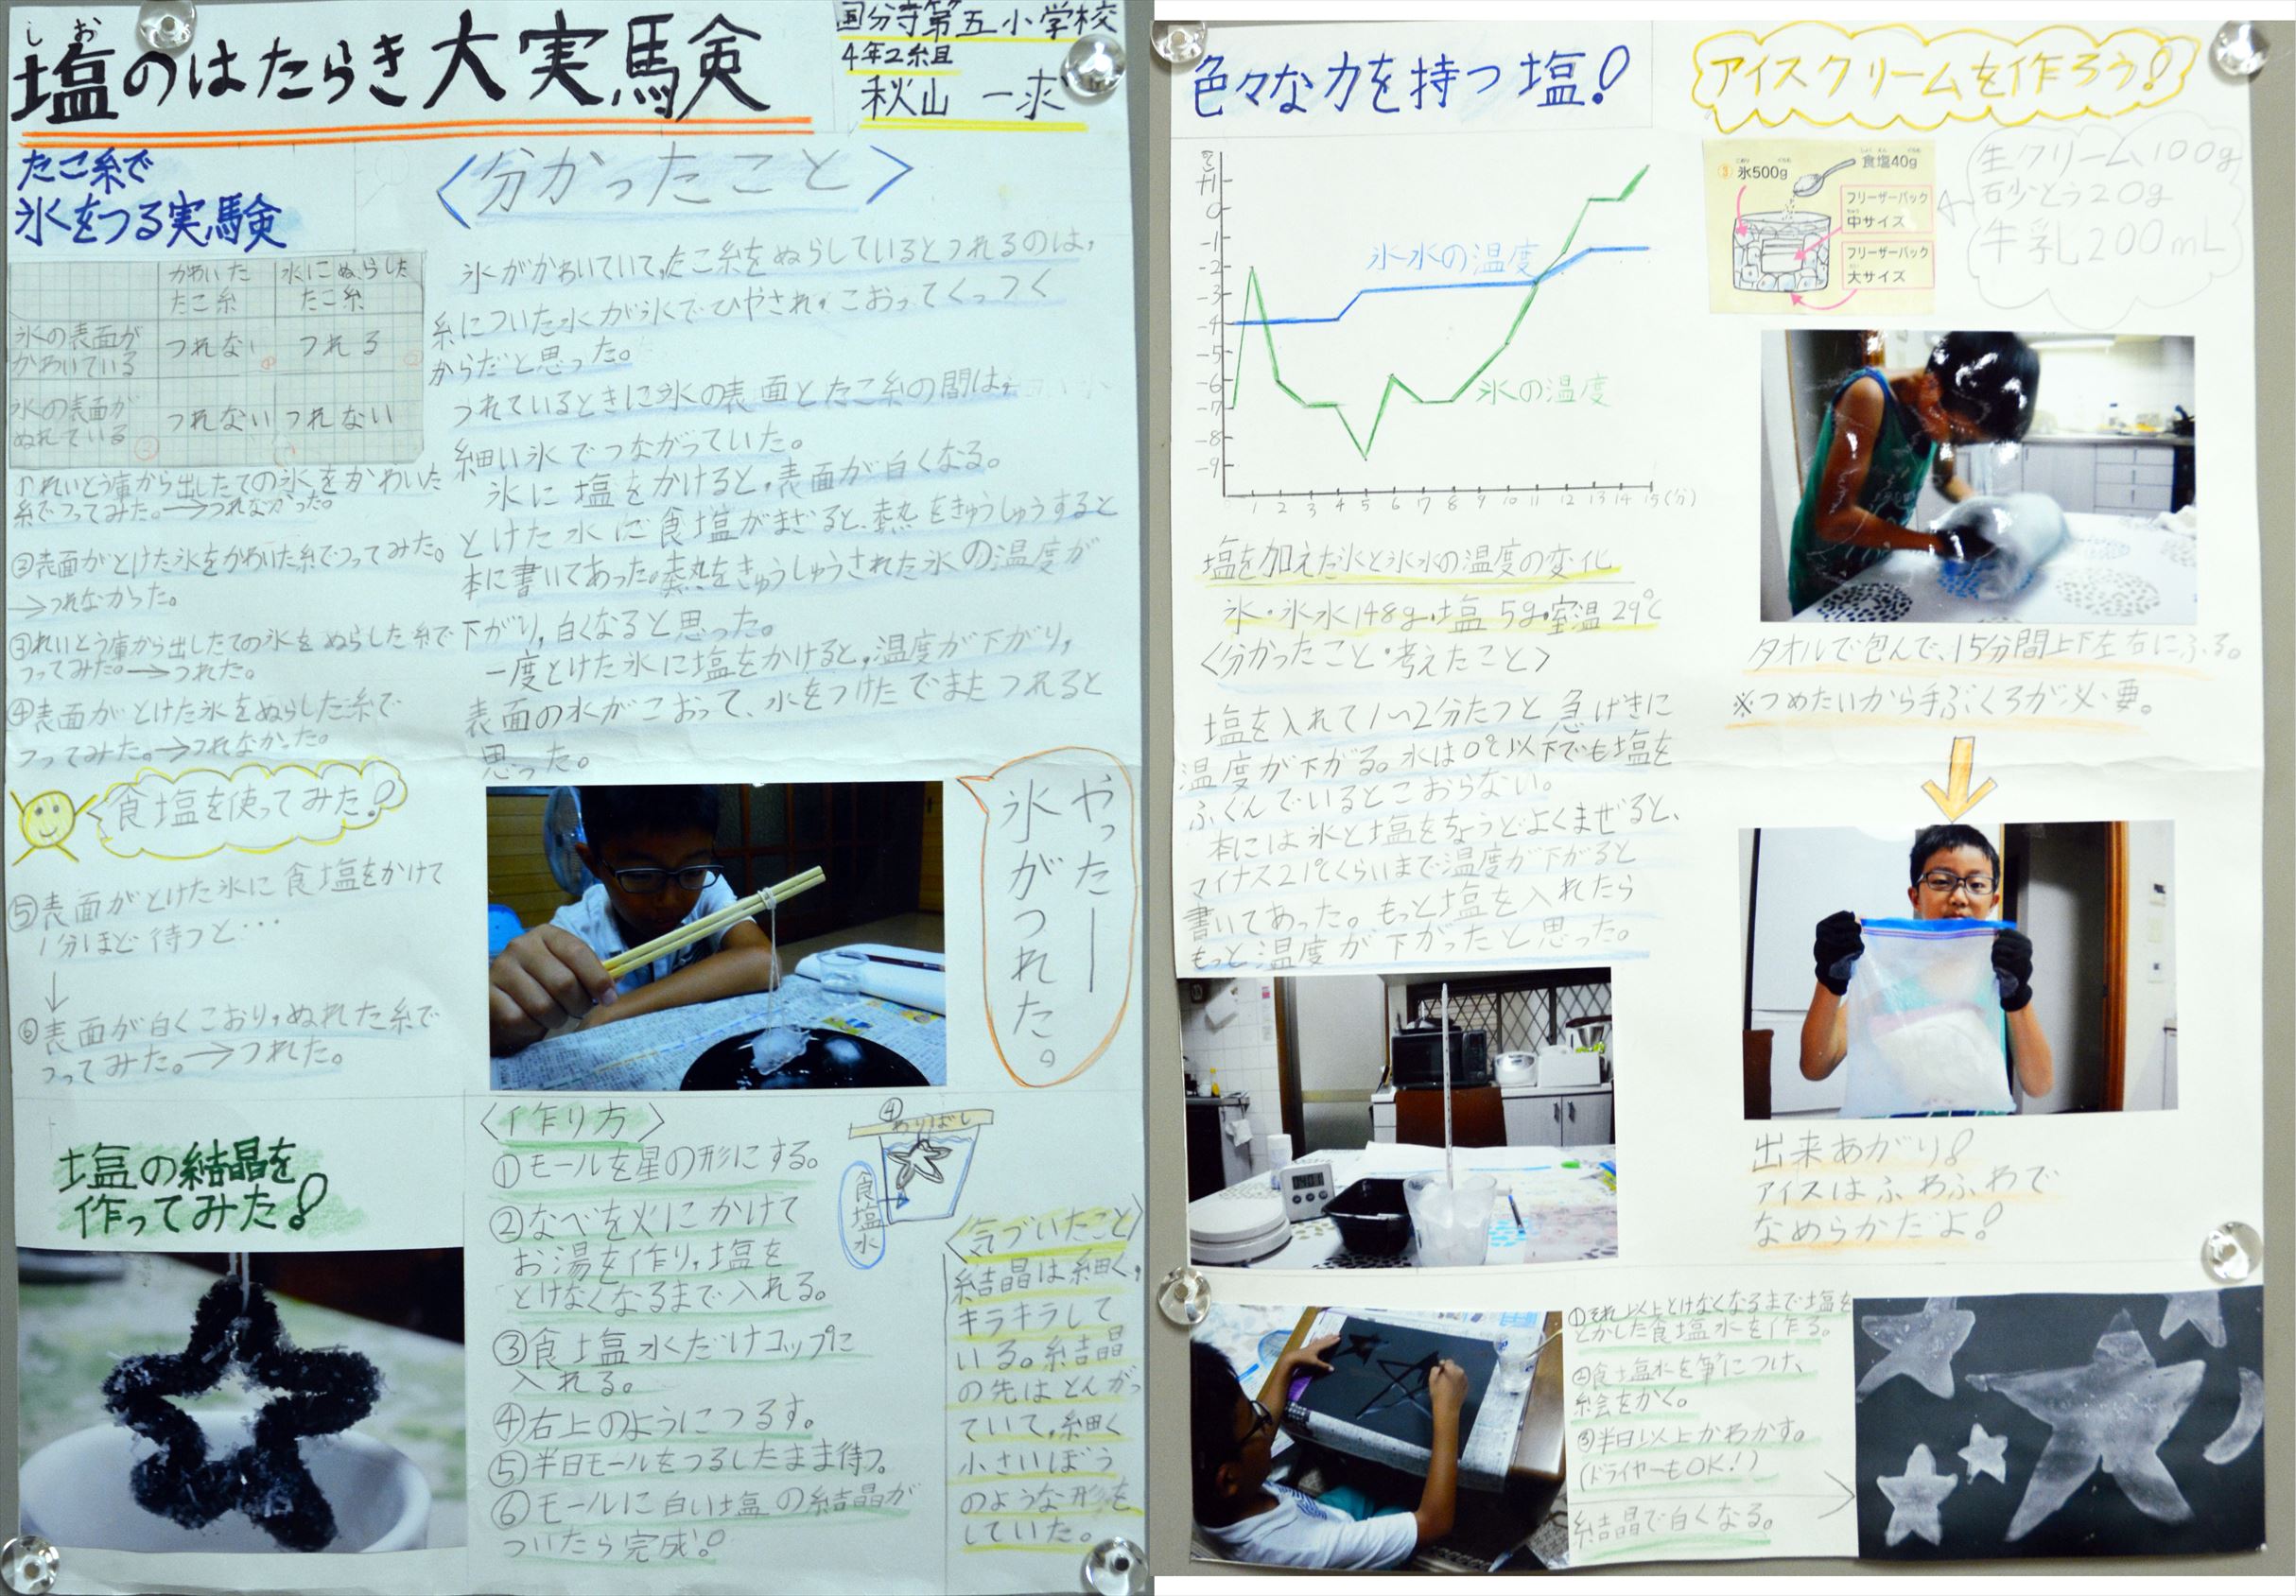 しお
塩のはたらき大実験
国分寺第五小学校
4年2組
秋山 一求
たこ糸で
氷をつる実験
かわいた
たこ糸
水にぬらした
たこ糸
氷の表面が
かわいている
つれない
つれる
氷の表面が
ぬれている
つれない
つれない
①れいとう庫から出したての氷をかわいた
糸でつってみた。→つれなかった。
②表面がとけた氷をかわいた糸でつってみた。
→つれなかった。
③れいとう庫から出したての氷をぬらした糸で
つってみた。→つれた。
④表面がとけた氷をぬらした糸で
つってみた。→つれなかった。
食塩を使ってみた!
⑤表面がとけた氷に食塩をかけて
1分ほど待つと…
↓
⑥表面が白くこおり,ぬれた糸で
つってみた。→つれた。
<分かったこと>
氷がかわいていて,たこ糸をぬらしているとつれるのは,
糸についた水が氷でひやされ,こおってくっつく
からだと思った。
つれているときに氷の表面とたこ糸の間は,
細い氷でつながっていた。
氷に塩をかけると,表面が白くなる。
とけた水に食塩がまざると、熱をきゅうしゅうすると
本に書いてあった。熱をきゅうしゅうされた氷の温度が
下がり,白くなると思った。
一度とけた氷に塩をかけると,温度が下がり,
表面の水がこおって、水をつけたでまたつれると
思った。
やったー
氷がつれた。
塩の結晶を
作ってみた!
<作り方>
①モールを星の形にする。
②なべを火にかけて
お湯を作り,塩を
とけなくなるまで入れる。
③食塩水だけコップに
入れる。
④右上のようにつるす。
⑤半日モールをつるしたまま待つ。
⑥モールに白い塩の結晶が
ついたら完成!
④
わりばし
食塩水
<気づいたこと>
結晶は細く,
キラキラして
いる。結晶
の先はとんがっ
ていて,細く
小さいぼう
のような形を
していた。
色々な力を持つ塩!
℃
+1
0
-1
-2
-3
-4
-5
-6
-7
-8
-9
氷水の温度
氷の温度
1 2 3 4 5 6 7 8 9 10 11 12 13 14 15(分)
塩を加えた氷と氷水の温度の変化
氷・氷水148g・塩 5g・室温29℃
<分かったこと・考えたこと>
塩を入れて1〜2分たつと急げきに
温度が下がる。水は0℃以下でも塩を
ふくんでいるとこおらない。
本には氷と塩をちょうどよくまぜると、
マイナス21℃くらいまで温度が下がると
書いてあった。もっと塩を入れたら
もっと温度が下がったと思った。
アイスクリームを作ろう!
③
こおり
氷500g
食塩40g
フリーザーバック
中サイズ
フリーザーバック
大サイズ
生クリーム100g
砂とう20g
牛乳200mL
タオルで包んで、15分間上下左右にふる。
※つめたいから手ぶくろが必要。
出来あがり!
アイスはふわふわで
なめらかだよ!
①それ以上とけなくなるまで塩を
とかした食塩水を作る。
②食塩水を筆につけ、
絵をかく。
③半日以上かわかす。
(ドライヤーもOK!)
結晶で白くなる。